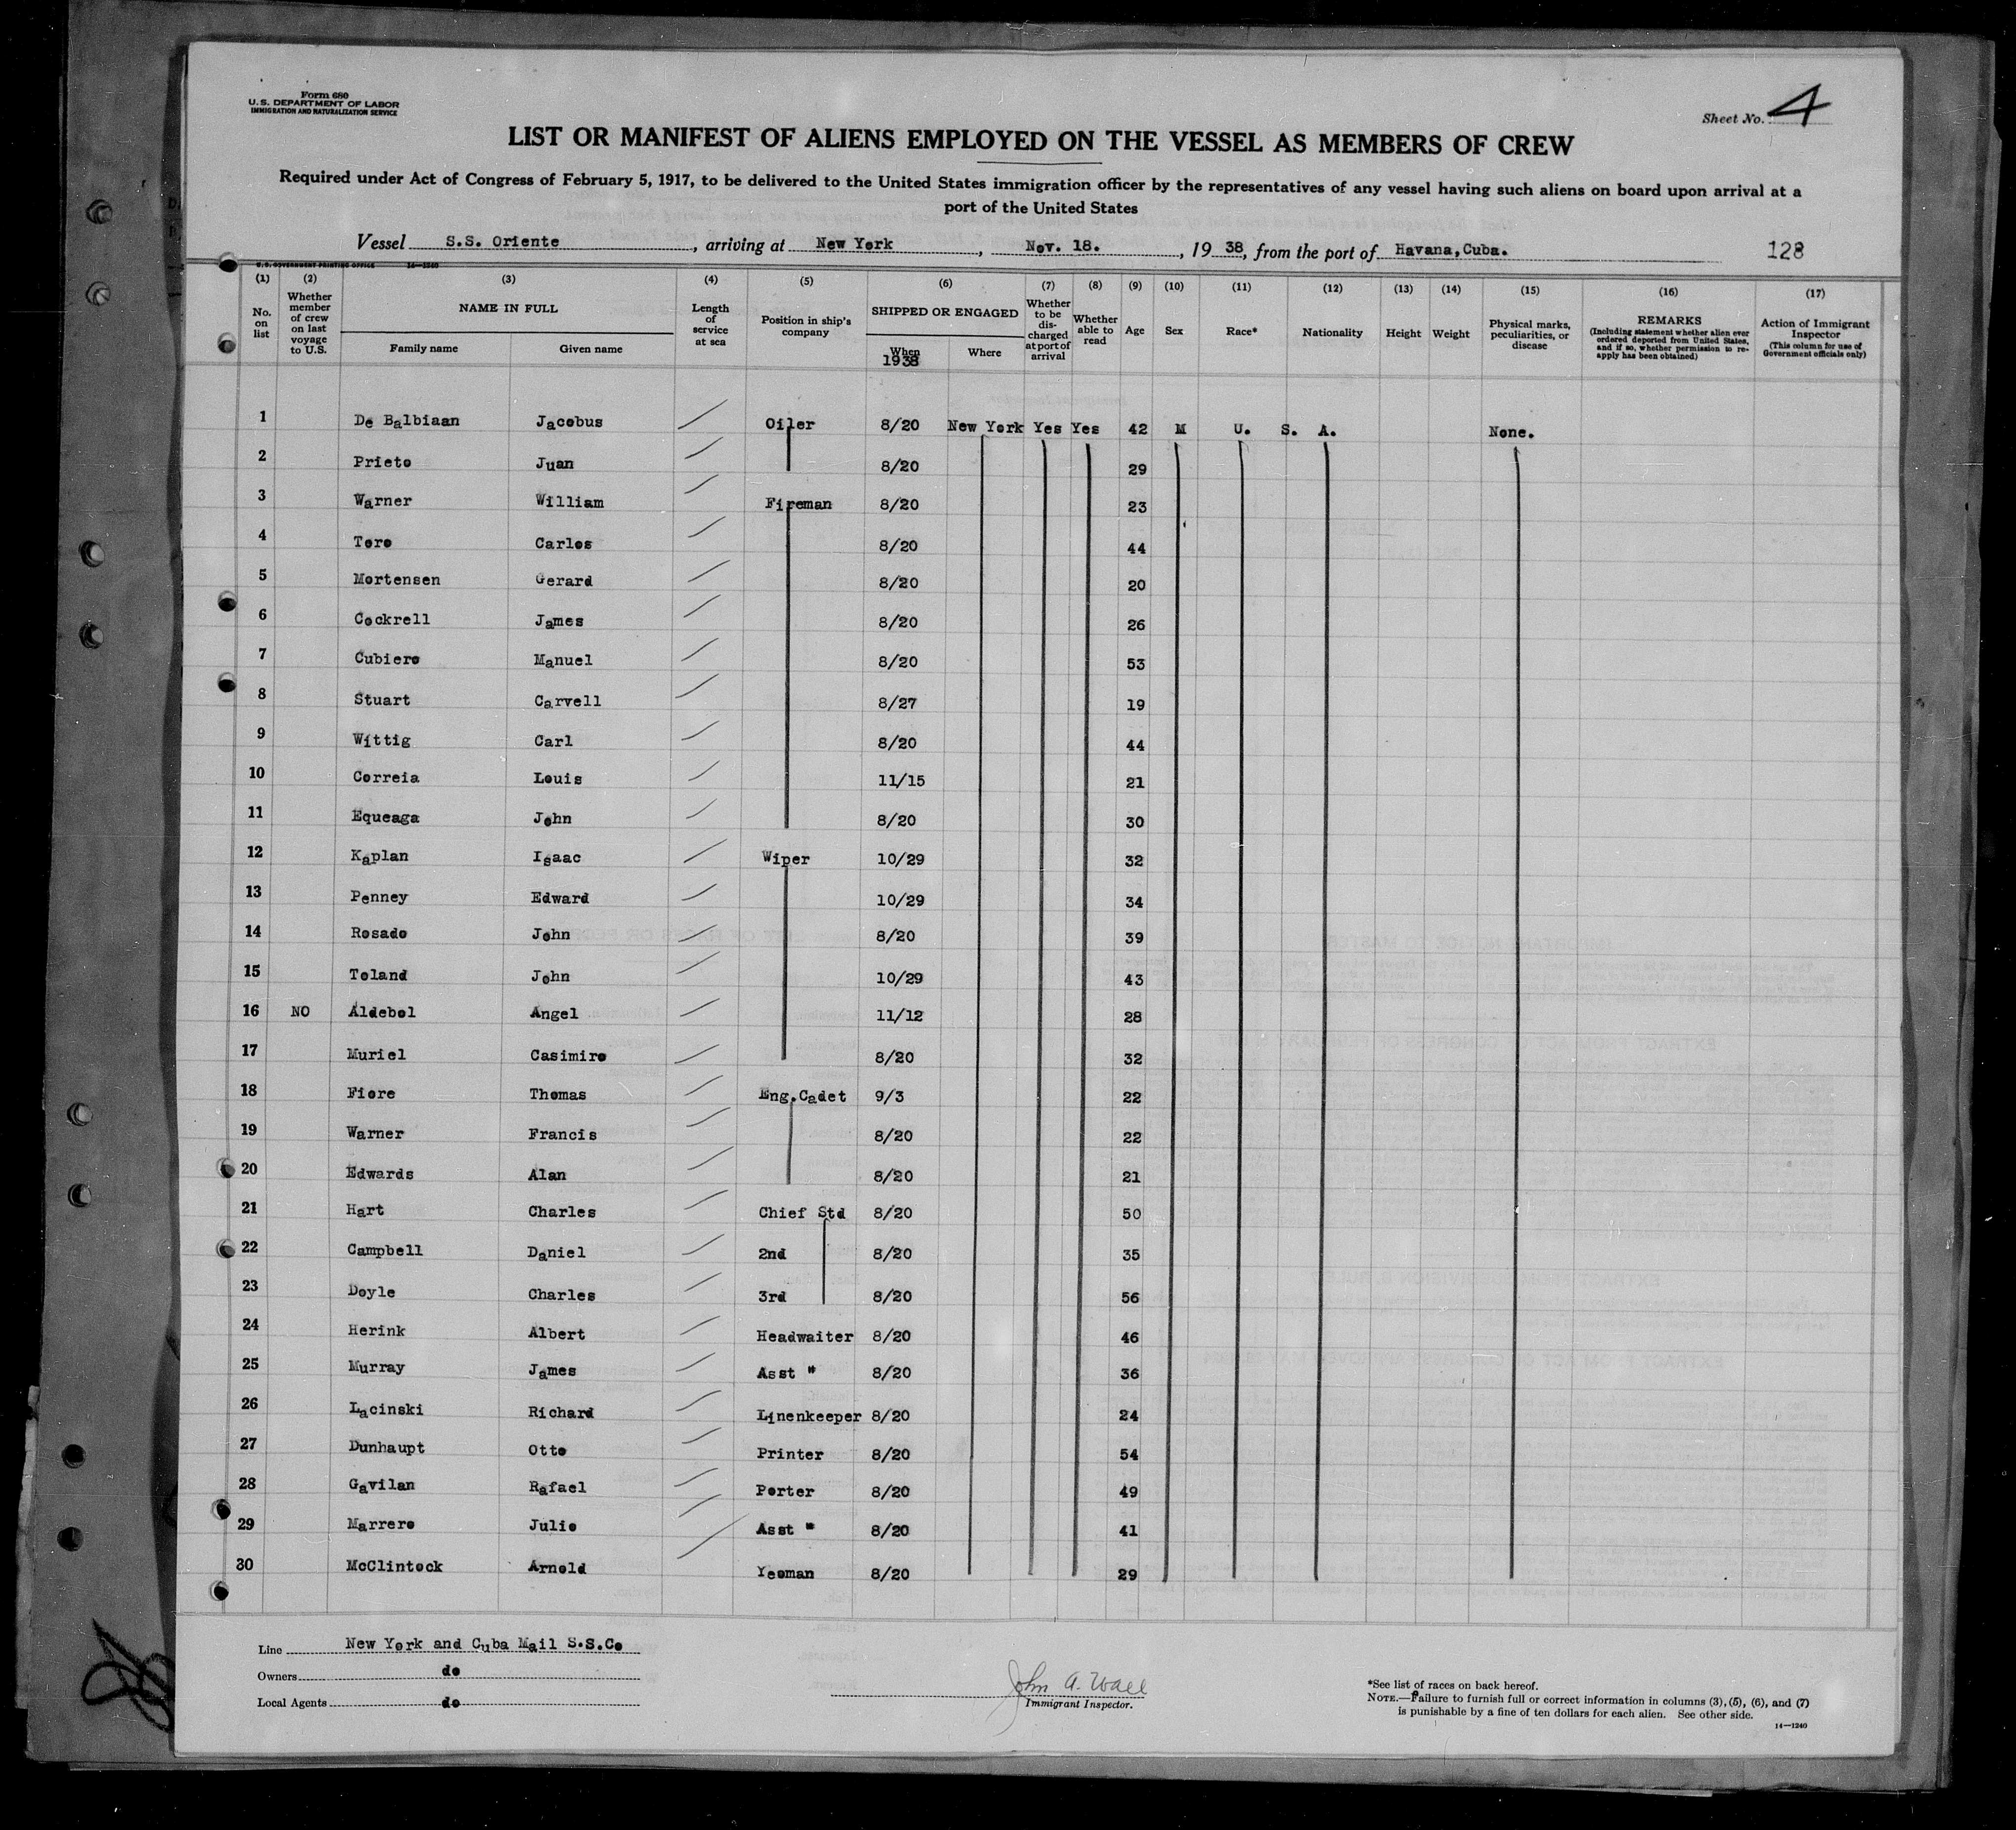 Form 680
U.S. DEPARTMENT OF LABOR
IMMIGRATION AND NATURALIZATION SERVICE
Sheet No. 4
LIST OR MANIFEST OF ALIENS EMPLOYED ON THE VESSEL AS MEMBERS OF CREW
Required under Act of Congress of February 5, 1917, to be delivered to the United States immigration officer by the representatives of any vessel having such aliens on board upon arrival at a
port of the United States
Vessel S.S. Oriente, arriving at New York, Nov. 18., 1938, from the port of Havana,Cuba. 128
U.S. GOVERNMENT PRINTING OFFICE 14—1240
(1) (2) (3) (4) (5) (6) (7) (8) (9) (10) (11) (12) (13) (14) (15) (16) (17)
No. on list
Whether member of crew on last voyage to U.S.
NAME IN FULL
Family name Given name
Length of service at sea
Position in ship's company
SHIPPED OR ENGAGED
When 1938 Where
Whether to be discharged at port of arrival
Whether able to read
Age
Sex
Race*
Nationality
Height
Weight
Physical marks, peculiarities, or disease
REMARKS
(Including statement whether alien ever ordered deported from United States, and if so, whether permission to re-apply has been obtained)
Action of Immigrant Inspector
(This column for use of Government officials only)
1 De Balbiaan Jacobus Oiler 8/20 New York Yes Yes 42 M U. S. A. None.
2 Prieto Juan 8/20 29
3 Warner William Fireman 8/20 23
4 Toro Carlos 8/20 44
5 Mortensen Gerard 8/20 20
6 Cockrell James 8/20 26
7 Cubiero Manuel 8/20 53
8 Stuart Carvell 8/27 19
9 Wittig Carl 8/20 44
10 Correia Louis 11/15 21
11 Equeaga John 8/20 30
12 Kaplan Isaac Wiper 10/29 32
13 Penney Edward 10/29 34
14 Rosado John 8/20 39
15 Toland John 10/29 43
16 NO Aldebol Angel 11/12 28
17 Muriel Casimiro 8/20 32
18 Fiore Thomas Eng.Cadet 9/3 22
19 Warner Francis 8/20 22
20 Edwards Alan 8/20 21
21 Hart Charles Chief Std 8/20 50
22 Campbell Daniel 2nd 8/20 35
23 Doyle Charles 3rd 8/20 56
24 Herink Albert Headwaiter 8/20 46
25 Murray James Asst " 8/20 36
26 Lacinski Richard Linenkeeper 8/20 24
27 Dunhaupt Otto Printer 8/20 54
28 Gavilan Rafael Porter 8/20 49
29 Marrero Julio Asst " 8/20 41
30 McClintock Arnold Yeoman 8/20 29
Line New York and Cuba Mail S.S.Co
Owners do
Local Agents do
John A. Wall
Immigrant Inspector.
*See list of races on back hereof.
NOTE.—Failure to furnish full or correct information in columns (3), (5), (6), and (7)
is punishable by a fine of ten dollars for each alien. See other side.
14—1240